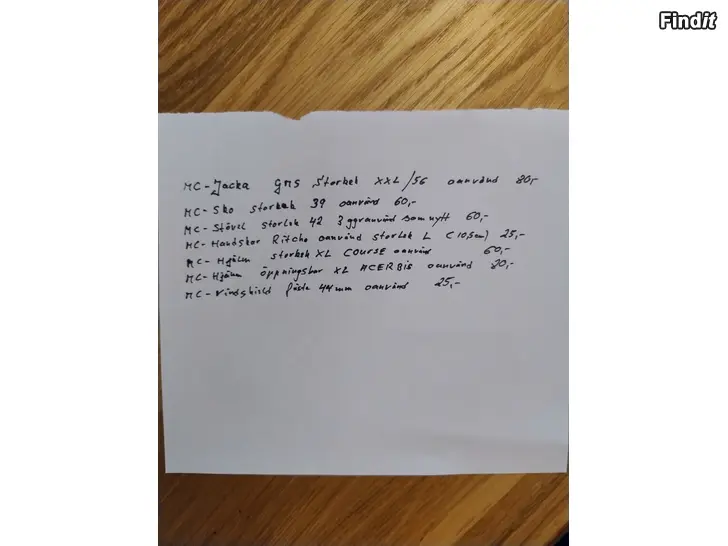 Findit
MC-Jacka GMS Storlek XXL/56 oanvänd 80,-
MC-Sko storlek 39 oanvänd 60,-
MC-Stövel storlek 42 3 ggr använd som nytt 60,-
MC-Handskar Richa oanvänd storlek L (10,5cm) 25,-
MC-Hjälm storlek XL COURSE oanvänd 60,-
MC-Hjälm öppningsbar XL ACERBIS oanvänd 80,-
MC-Vindshield fäste 44mm oanvänd 25,-